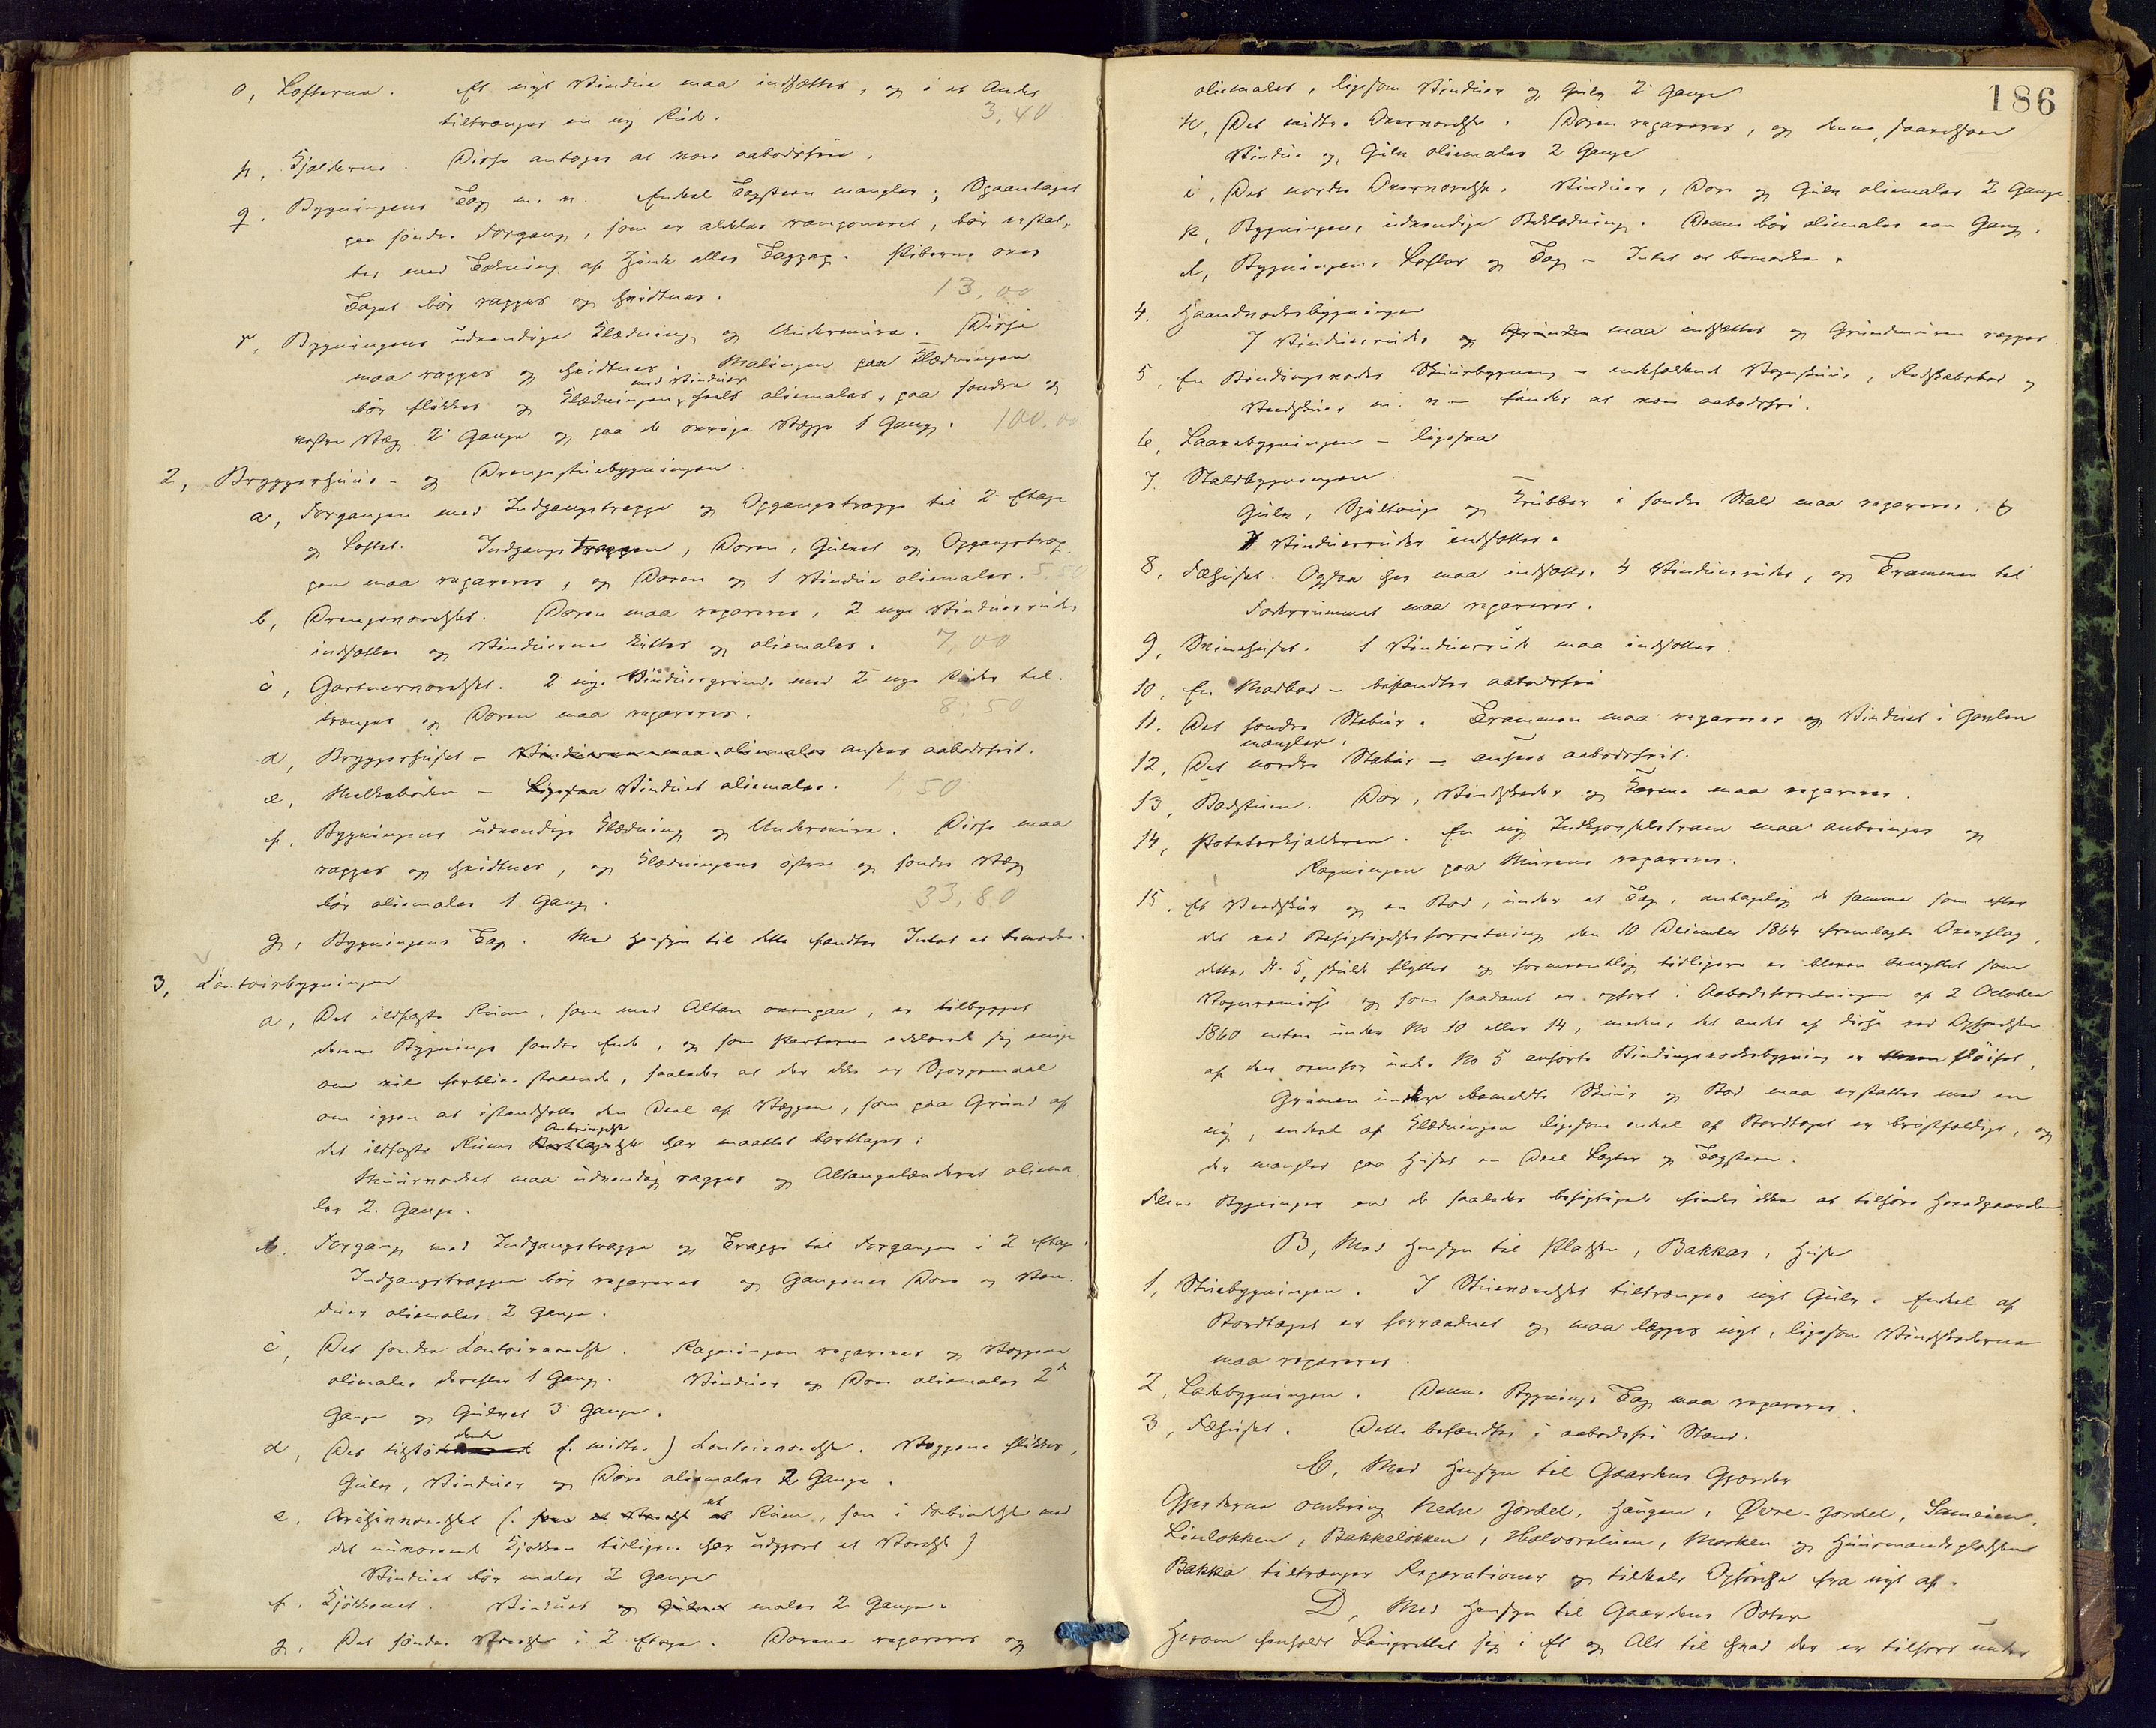 o, Lofterne. Et nyt Vindue maa indsættes, og i et Andet
tiltrænges en ny Rude. 3,40
p, Kjelderne. Disse antages at være aabodsfrie.
q. Bygningens Tag m. v. Enkel Tagsteen mangler; Spaantaget
paa søndre Forgang, som er aldeles ramponeret, bør erstat-
tes med Tækning af Zink eller Tagpap. Piberne over
Taget bør rappes og hvidtnes. 13,00
r, Bygningens udvendige Klædning og Undermure. Disse
maa rappes og hvidtnes. Malingen paa Klædningen
med Vinduer
bør flikkes og Klædningen, oliemales, paa søndre og
vestre Væg 2 Gange og paa de øvrige Vægge 1 Gang. 100,00
2, Bryggerhuus- og Drengestuebygningen.
a, Forgangen med Indgangstrappe og Opgangstrappe til 2 Etage
og Loftet. Indgangstrappen, Doren, Gulvet og Opgangstrap-
pen maa repareres, og Doren og 1 Vindue oliemales. 5,50
b, Drengeværelset. Doren maa repareres, 2 nye Vinduesruder
indsættes og Vinduerne kittes og oliemales. 7,00
c, Gartnerværelset. 2 nye Vinduesgrinder med 2 nye Ruder til-
trænges og Doren maa repareres. 8,50
d, Bryggerhuset – Vinduerne maa oliemales ansees aabodsfrit.
e, Melkeboden – Ligesaa Vinduet oliemales. 1,50
f, Bygningens udvendige Klædning og Undermure. Disse maa
rappes og hvidtnes, og Klædningens østre og søndre Væg
bør oliemales 1 Gang. 33,80
g, Bygningens Tag. Med Hensyn til dette fandtes Intet at bemærke.
3, Contoirbygningen
a, Det ildfaste Rum, som med Altan ovenpaa, er tilbygget
denne Bygnings søndre Ende, og som Parterne erklærede sig enige
om vil forblive staaende, saaledes at der ikke er Spørgsmaal
om igjen at istandsætte den Deel af Væggen, som paa Grund af
Anbringelse
det ildfaste Rums Borttagelse har maattet borttages:
Muurværket maa udvendig rappes og Altangelænderet oliema-
les 2 Gange.
b. Forgang med Indgangstrappe og Trappe til Forgangen i 2 Etage.
Indgangstrappen bør repareres og Gangenes Dore og Vin-
duer oliemales 2 Gange.
c, Det søndre Contoirværelse. Rapningen repareres og Væggene
oliemales derefter 1 Gang. Vinduer og Dore oliemales 2
Gange og Gulvet 3 Gange.
dende
d, Det tilstø (: midtre) Contoirværelse. Væggene flikkes,
Gulv, Vinduer og Døre oliemales 2 Gange.
et
e. (: Rum, som i Forbindelse med
det nuværende Kjøkken tidligere har udgjort et Værelse)
Vinduet bør males 2 Gange
f. Kjøkkenet. Vinduet og Gulvet males 2 Gange.
g. Det søndre Værelse i 2 Etage. Dorene repareres og
186
oliemales, ligesom Vinduer og Gulv 2 Gange
h, Det midtre Værelse. Døren repareres, og denne, saavelsom
Vindue og Gulv oliemales 2 Gange
i, Det nordre Værelse. Vinduer, Dore og Gulv oliemales 2 Gange.
k, Bygningens udvendige Beklædning. Denne bør oliemales een Gang.
l, Bygningens Lofter og Tag – Intet at bemærke.
4. Haandværksbygningen
7 Vinduesruder og maa indsættes og Grundmuren rappes.
5, En Bindingsværks Skuurbygning – indeholdende Vognskuur, Redskabsbod og
Vedskuur m. v. – fandtes at være aabodsfri.
6, Laavebygningen – ligesaa
7. Staldbygningen:
Gulv, Spiltoug og Krubber i søndre Stald maa repareres, &
7 Vinduesruder indsættes.
8, Fæhuset. Ogsaa her maa indsættes 4 Vinduesruder, og Trammen til
Foderrummet maa repareres.
9, Svinehuset. 1 Vinduesrude maa indsættes.
10, En Madbod – befandtes aabodsfri
11. Det søndre Stabur. Trammen maa repareres og Vinduet i Gavlen
mangler.
12, Det nordre Stabur – ansees aabodsfrit.
13, Badstuen. Dør, Vindskeder og maa repareres.
14, Poteteskjelderen. En ny Indkjørselstram maa anbringes og
Rapningen paa Murene repareres.
15. Et Vedskur og en Bod, under et Tag, antagelig de samme som efter
det ved Besigtigelsesforretning den 10 December 1864 fremlagte Overslag,
dettes N. 5, skulde flyttes og formeentlig tidligere er bleven benyttet som
Vognremise og som saadant er opført i Aabodsforretningen af 2 October
1860 enten under No 10 eller 14, medens det andet af disse ved Opførelsen
af den ovenfor under No 5 anførte Bindingsværksbygning er sløifet.
Gruven under bemeldte Skuur og Bod maa erstattes med en
ny, endeel af Klædningen ligesom endeel af Bordtaget er brøstfældigt, og
der mangler paa Huset en Deel Lægter og Tagsteen.
Flere Bygninger end de saaledes besigtigede findes ikke at tilhøre Hovedgaarden.
B, Med Hensyn til Pladsen, Bakkas, Huse
1, Stuebygningen. I Stueværelset tiltrænges nyt Gulv. Endeel af
Bordtaget er forraadnet og maa lægges nyt, ligesom Vindskederne
maa repareres.
2, Ladebygningen. Denne Bygnings Tag maa repareres.
3, Fæhuset. Dette befandtes i aabodsfri Stand.
C, Med Hensyn til Gaardens Gjærder
Gjerderne omkring Nedre Jordet, Haugen, Øvre-Jordet,
Linløkken, Bakkeløkken, Halvorsløen, Marken og Huusmandspladsen
Bakka tiltrænger Reparationer og tildeels Opførelse fra nyt af.
D, Med Hensyn til Gaardens Sæter
Herom henholdt Laugrettet sig i Et og Alt til hvad der er tilført under